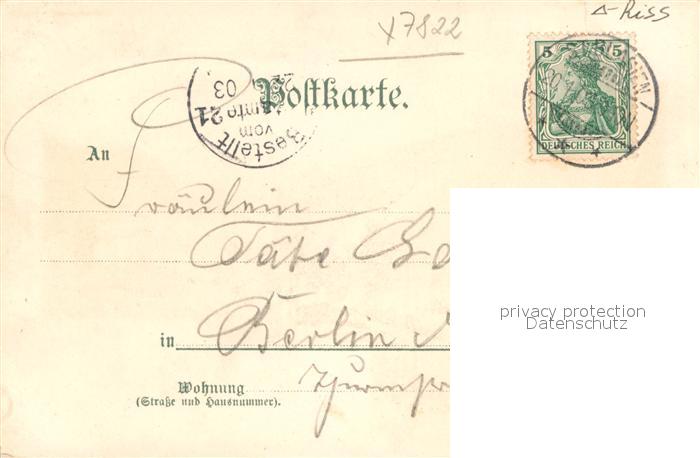 x7822
△-Riss
5 5
DEUTSCHES REICH
Bestellt
vom
Postamte 21
03
Postkarte.
An
Fräulein
Käte
in Berlin
Wohnung
(Straße und Hausnummer).
privacy protection
Datenschutz